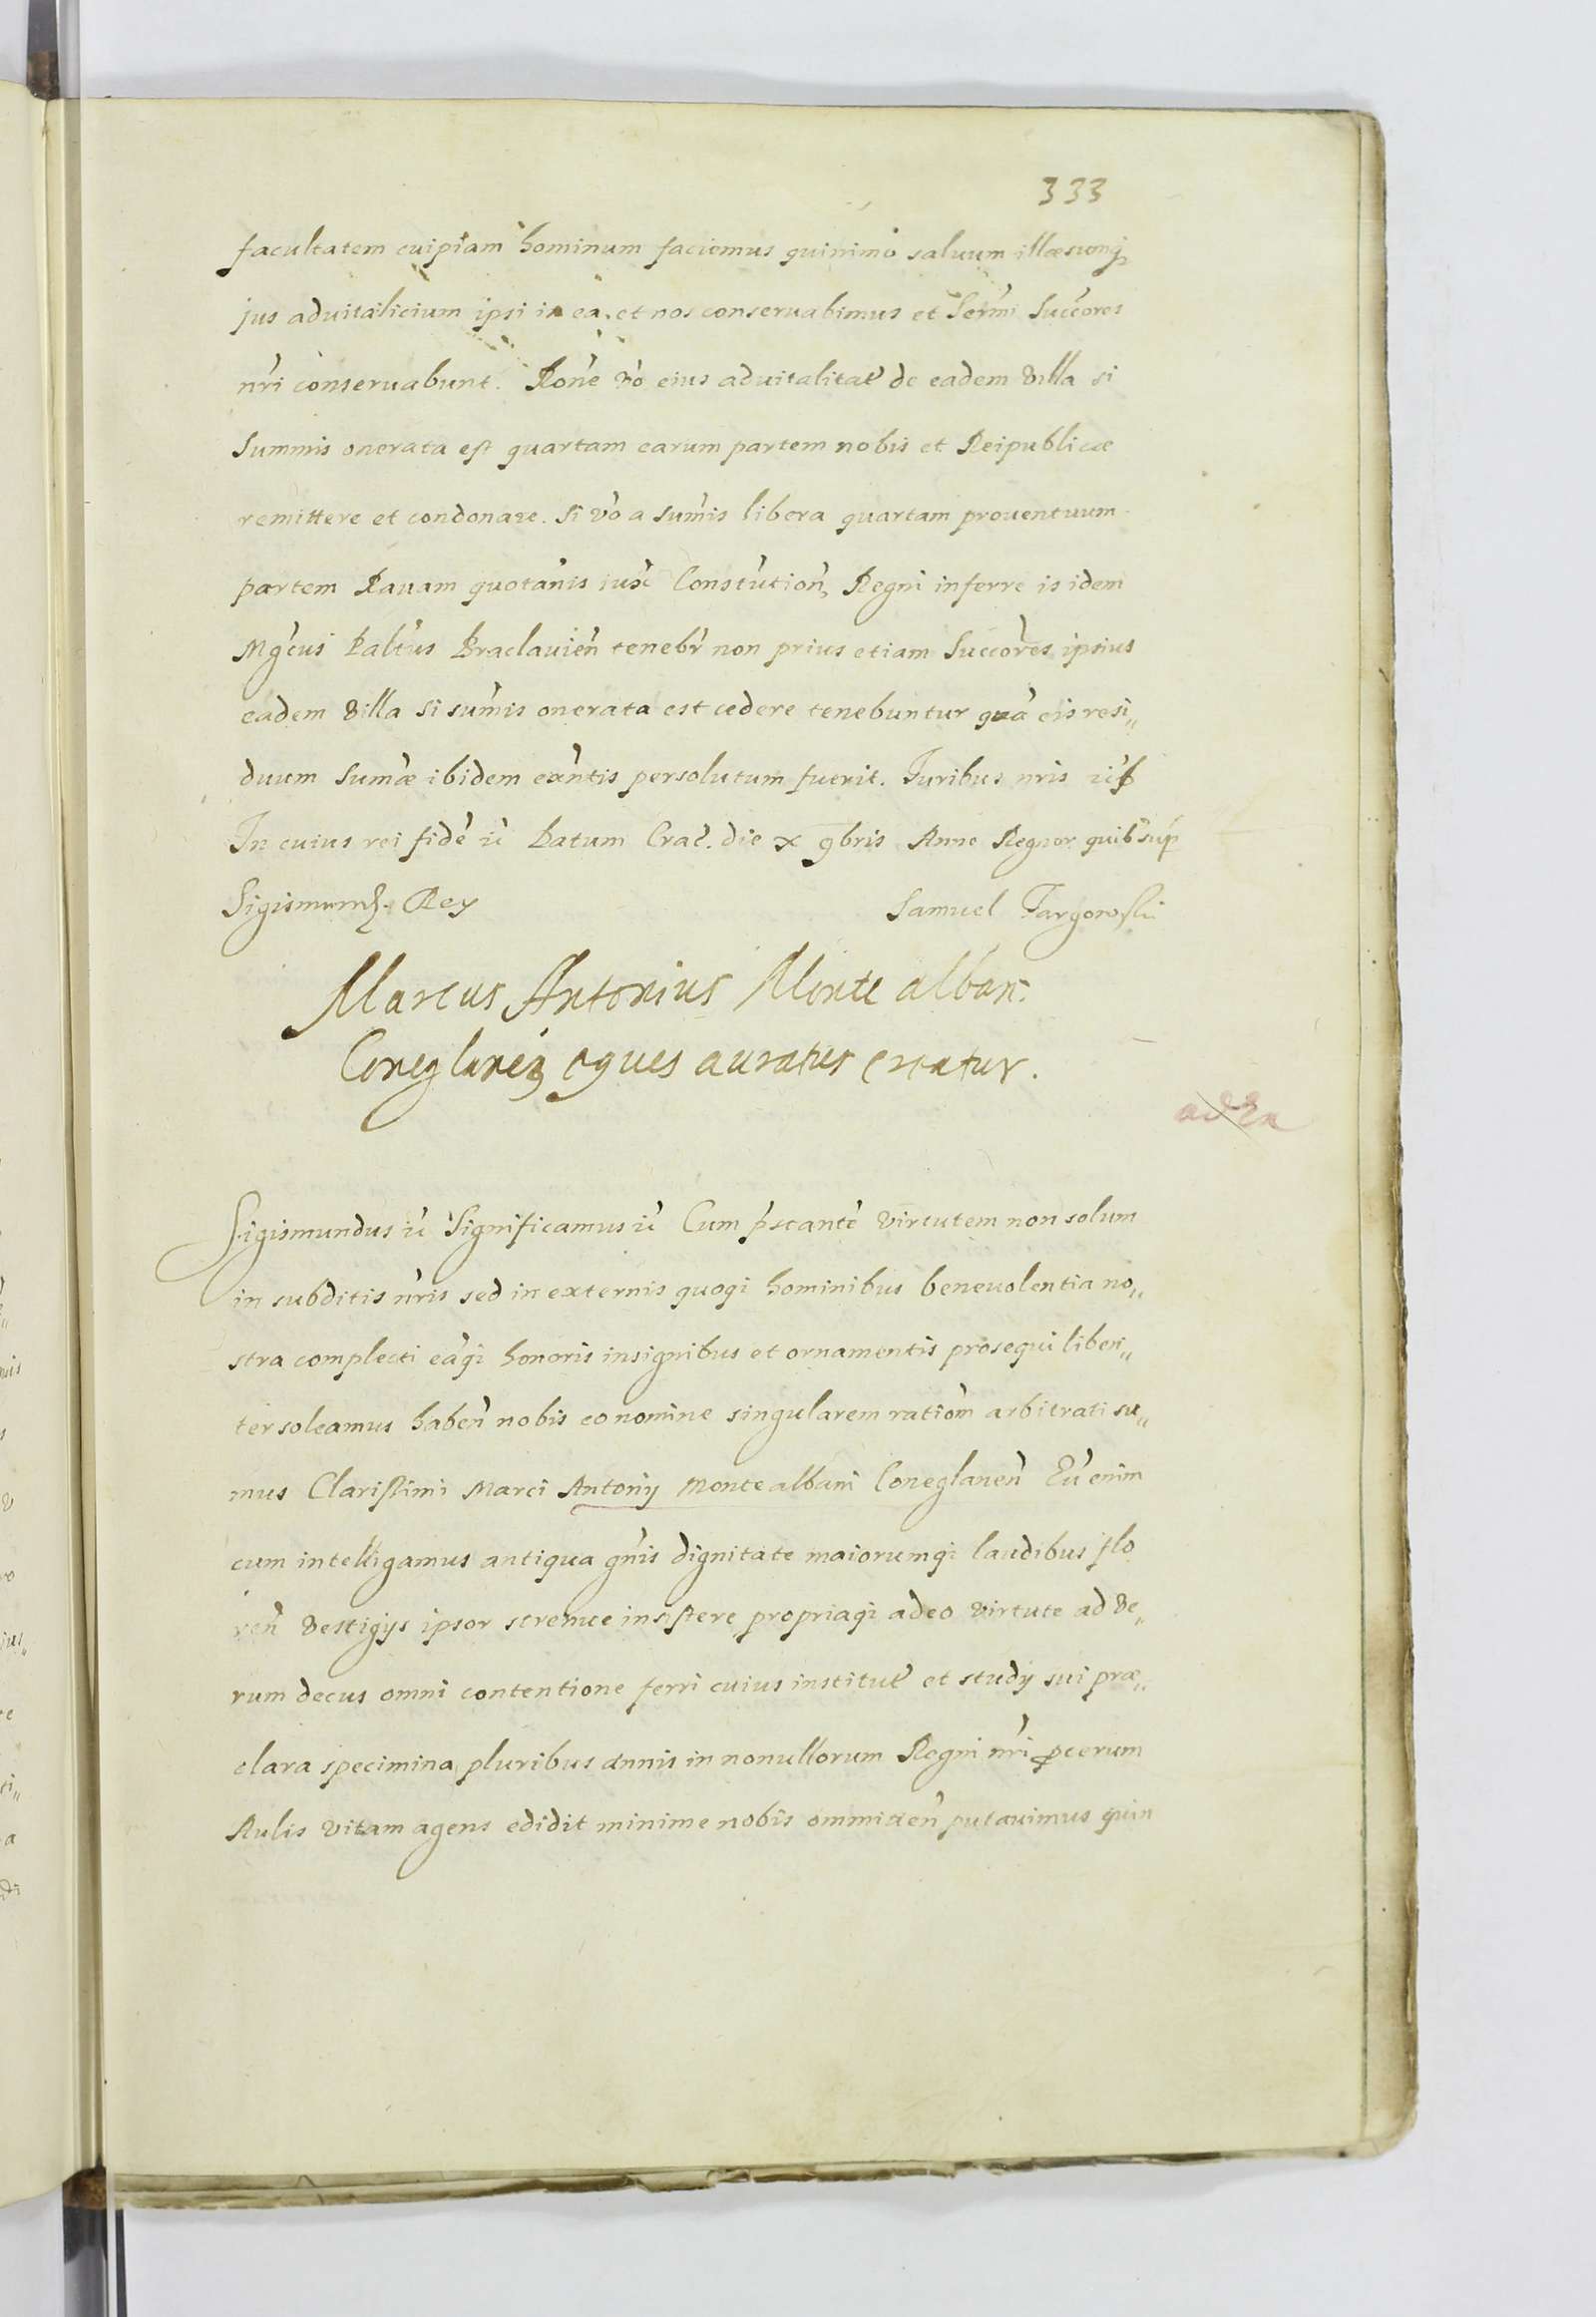 333
facultatem cuipiam hominum faciemus quinimo saluum illæsumq
jus aduitalicium ipsi in ea. et nos conseruabimus et Sermi Succores
nri conseruabunt. Rone vo eius aduitalitat de eadem villa si
Summis onerata est quartam earum partem nobis et Reipublicæ
remittere et condonare. Si vo a sumis libera quartam prouentuum
partem Rauam quotanis iux Constution, Regni inferre is idem
Mgcus Paltus Braclauien tenebr non prius etiam Succores ipsius
eadem villa si sumis onerata est cedere tenebuntur qua eis resi„
duum Sumæ ibidem exntis persolutum fuerit. Juribus nris
In cuius rei fide Datum Crac. die x 9bris Anno Regnor quib sup
Sigismund. Rex
Samuel Targowski
Marcus Antonius Monte alban.
Coneglanen eques auratus creatur.
Sigismundus Significamus Cum pstante virtutem non solum
in subditis nris sed in externis quoqi hominibus beneuolentia no„
stra complecti eaqi honoris insignibus et ornamentis prosequi liben„
ter soleamus haben nobis eo nomine singularem rationm arbitrati su„
mus Clarissimi Marci Antonij Monte albani Coneglanen Eu enim
cum intelligamus antiqua gnis dignitate maiorumqi laudibus flo
ren vestigijs ipsor strenue insistere propriaqi adeo virtute ad ve„
rum decus omni contentione ferri cuius institut et studij sui præ„
clara specimina pluribus annis in nonullorum Regni nri pcerum
Aulis vitam agens edidit minime nobis ommitten putauimus quin